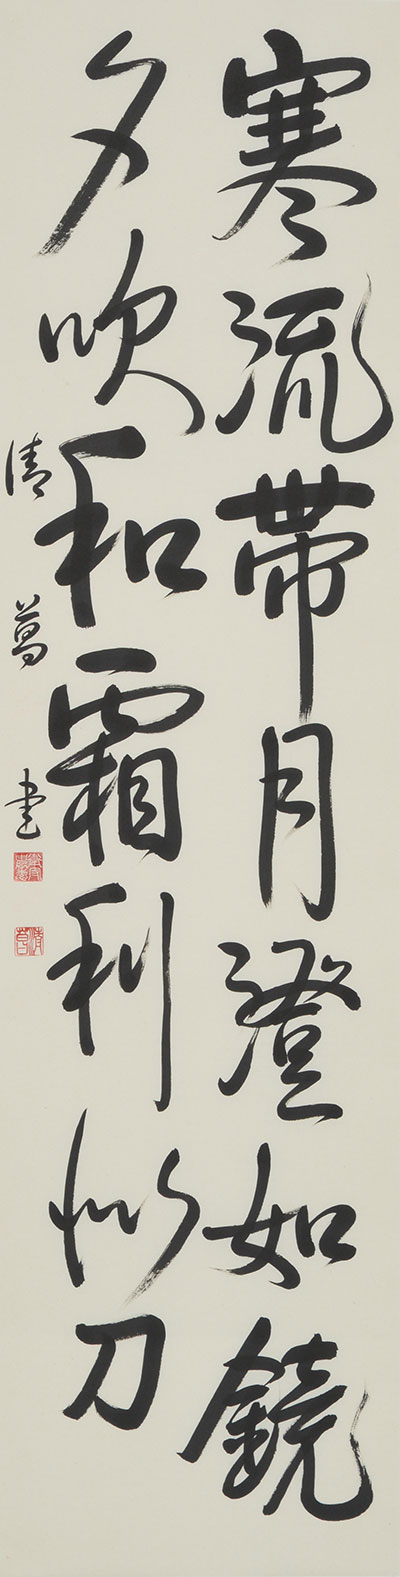 寒流帯月澄如鏡
夕吹和霜利似刀
清書